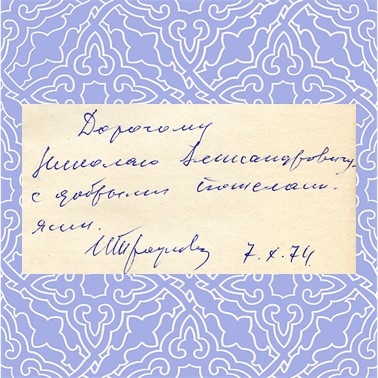 Дорогому
Николаю Александровичу
с добрыми пожелани-
ями.
7.X.74